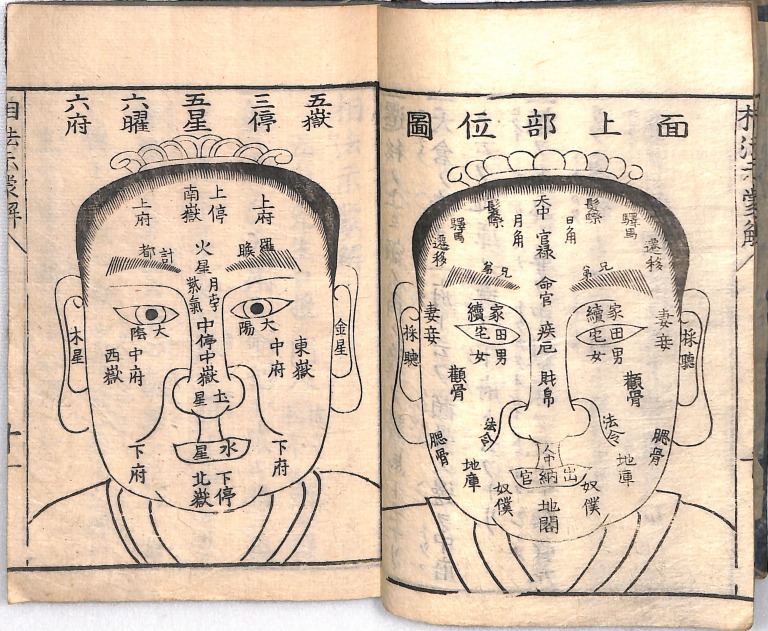 面上部位圖
天中
官禄
命宮
疾厄
財帛
人中
出納官
地閣
日角
月角
髎
髎
驛馬
驛馬
遷移
遷移
兄弟
兄弟
家續
田宅
男女
家續
田宅
男女
妻妾
妻妾
採聽
採聽
顴骨
顴骨
法令
法令
腮骨
腮骨
地庫
地庫
奴僕
奴僕
五嶽
三停
五星
六曜
六府
上府
上停
南嶽
上府
羅睺
火星
計都
月孛
紫氣
大陽
大陰
金星
木星
東嶽
中府
中停
中嶽
中府
西嶽
土星
水星
下府
下府
下停
北嶽